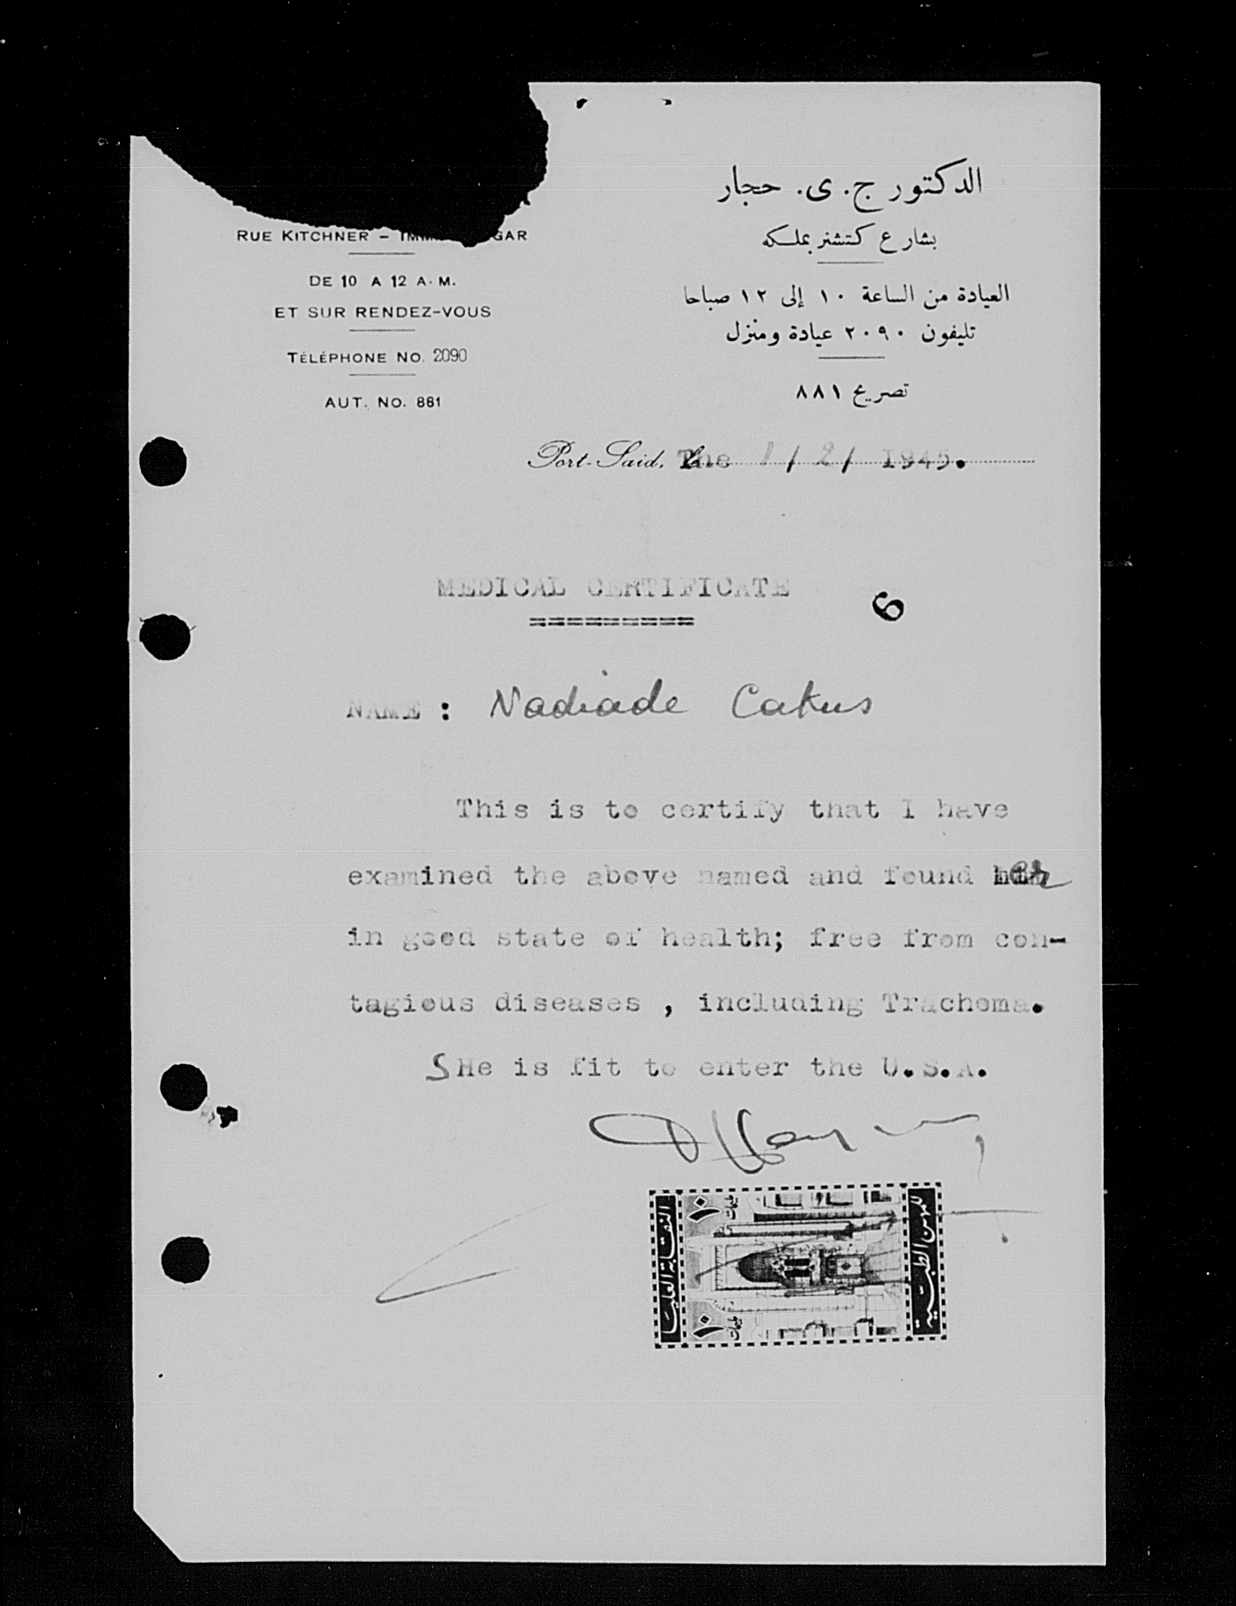 RUE KITCHNER - IMM GAR
DE 10 A 12 A.M.
ET SUR RENDEZ-VOUS
TÉLÉPHONE NO. 2090
AUT. NO. 881
الدكتور ج. ى. حجار
بشارع كتشنر بملكه
العيادة من الساعة ١٠ إلى ١٢ صباحا
تليفون ٢٠٩٠ عيادة ومنزل
تصريح ٨٨١
Port-Said, The 1/2/ 1945.
MEDICAL CERTIFICATE
==========
6
NAME : Nadiade Cakus
This is to certify that I have
examined the above named and found her
in good state of health; free from con-
tagious diseases , including Trachoma.
SHe is fit to enter the U.S.A.
١٠ مليمات
١٠ مليمات
للمهن الطبية